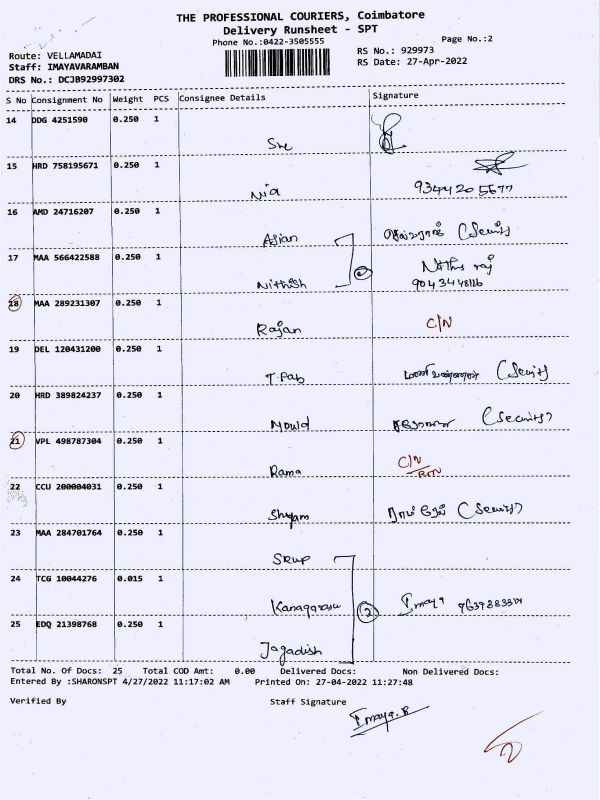 THE PROFESSIONAL COURIERS, Coimbatore
Delivery Runsheet - SPT
Phone No.:0422-3505555
Page No.:2
Route: VELLAMADAI
RS No.: 929973
Staff: IMAYAVARAMBAN
RS Date: 27-Apr-2022
DRS No.: DCJB92997302
S No Consignment No Weight PCS Consignee Details Signature
14 DDG 4251590 0.250 1
Sre
15 HRD 758195671 0.250 1
Nia 9344205677
16 AMD 24716207 0.250 1
Asian
17 MAA 566422588 0.250 1
Nithish 9043448116
18 MAA 289231307 0.250 1
Rajan C/N
19 DEL 120431200 0.250 1
T.Pab
20 HRD 389824237 0.250 1
Mould (Security)
21 VPL 498787304 0.250 1
Rama C/N
22 CCU 200004031 0.250 1
Shyam
23 MAA 284701764 0.250 1
SRUP
24 TCG 10044276 0.015 1
Kanagarasu 2
25 EDQ 21398768 0.250 1
Jagadish
Total No. Of Docs: 25 Total COD Amt: 0.00 Delivered Docs: Non Delivered Docs:
Entered By :SHARONSPT 4/27/2022 11:17:02 AM Printed On: 27-04-2022 11:27:48
Verified By Staff Signature
Imaya.B